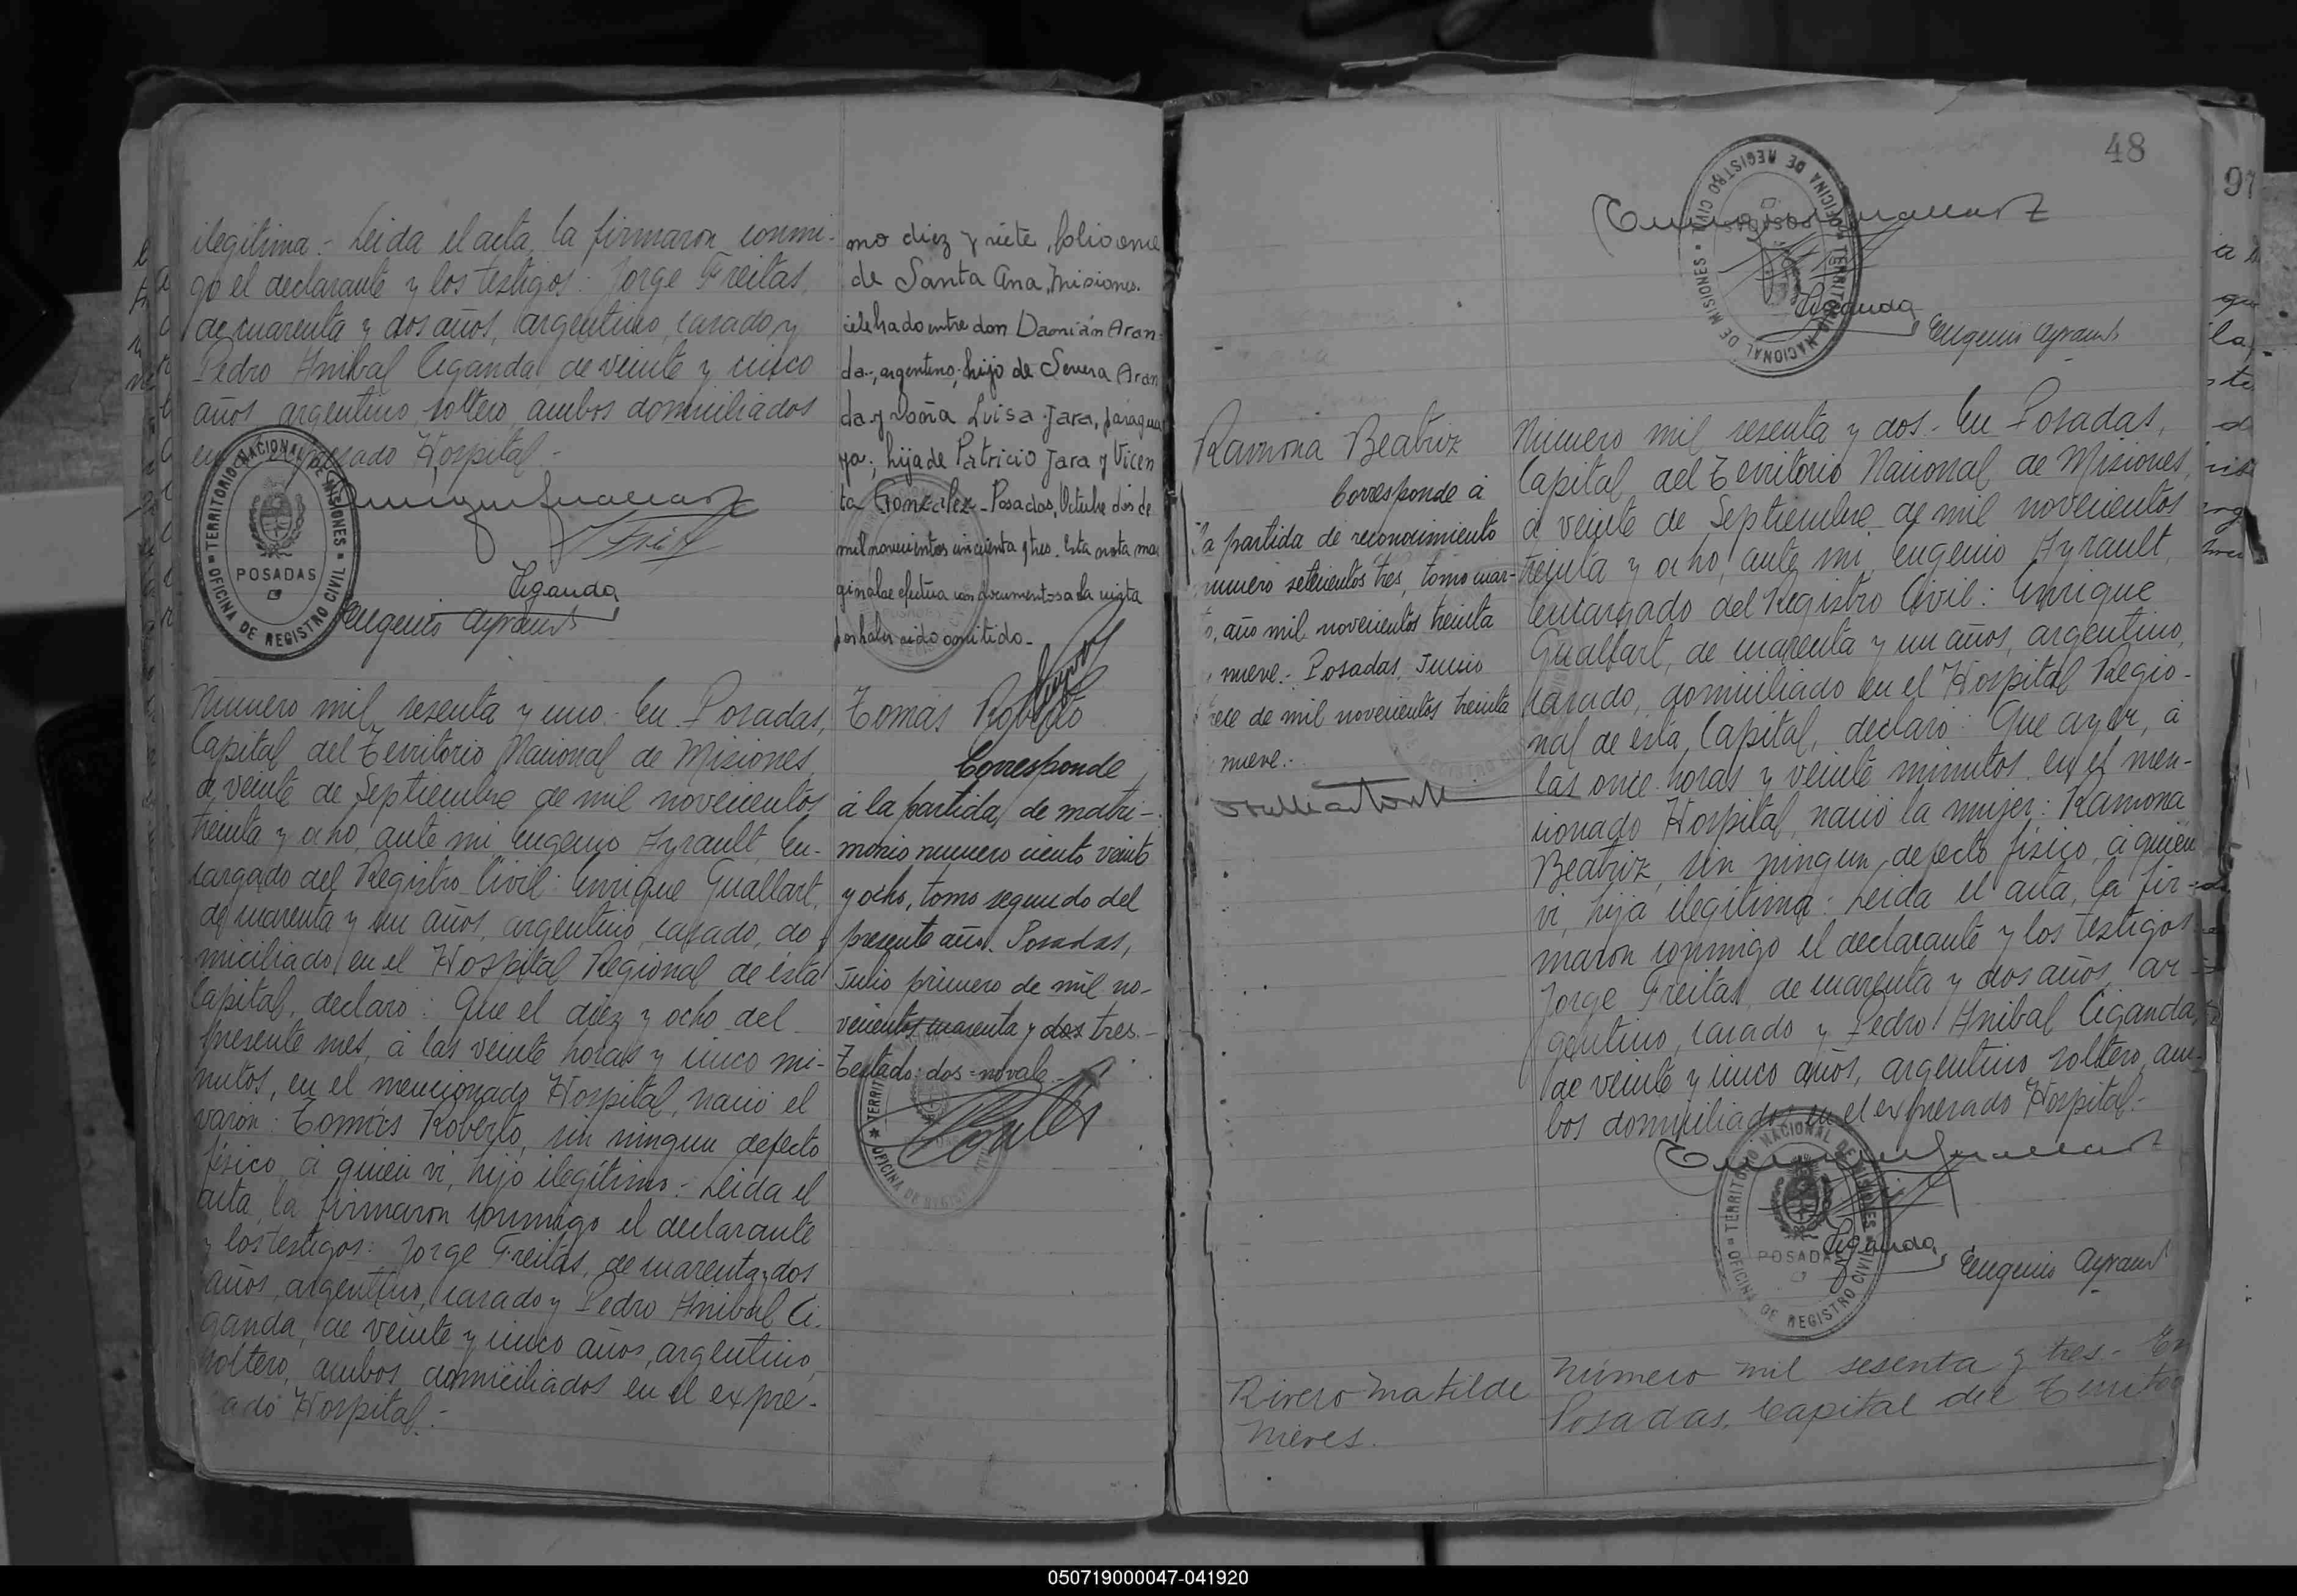 ilegítima.- Leida el acta, la firmaron conmi-
go el declarante y los testigos: Jorge Freitas,
de cuarenta y dos años, argentino, casado y
Pedro Anibal Ciganda, de veinte y cinco
años, argentino, soltero, ambos domiciliados
en Hospital.-
TERRITORIO NACIONAL DE MISIONES
POSADAS
OFICINA DE REGISTRO CIVIL
Ciganda
Eugenio Ayrault
mo diez y siete, folio once
de Santa Ana, Misiones.
celebrado entre don Damián Aran-
da, argentino, hijo de Severa Aran
da y doña Luisa Jara, paragua
ya, hija de Patricio Jara y Vicen
ta González - Posadas, Octubre dos de
mil novecientos cincuenta y tres. Esta nota mar
ginal se efectua con documentos a la vista
por haber sido omitido.-
Numero mil sesenta y uno.- En Posadas,
Capital del Territorio Nacional de Misiones,
a veinte de Septiembre de mil novecientos
treinta y ocho, ante mi Eugenio Ayrault, En-
cargado del Registro Civil: Enrique Guallart,
de cuarenta y un años, argentino, casado, do
miciliado en el Hospital Regional de ésta
Capital, declaró: Que el diez y ocho del
presente mes, á las veinte horas y cinco mi-
nutos, en el mencionado Hospital, nació el
varón: Tomás Roberto, sin ningun defecto
físico, á quien vi, hijo ilegítimo.- Leida el
acta, la firmaron conmigo el declarante
y los testigos: Jorge Freitas, de cuarenta y dos
años, argentino, casado y Pedro Anibal Ci-
ganda, de veinte y cinco años, argentino,
soltero, ambos domiciliados en el expre-
sado Hospital.-
Tomás Roberto
Corresponde
á la partida de matri-
monio numero ciento veinte
y ocho, tomo segundo del
presente año. Posadas,
Julio primero de mil no-
vecientos cuarenta y dos tres.-
Testado: dos = no vale.-
48
97
TERRITORIO NACIONAL DE MISIONES
POSADAS
OFICINA DE REGISTRO CIVIL
Ciganda
Eugenio Ayrault
Ramona Beatriz
Corresponde á
la partida de reconocimiento
numero setecientos tres, tomo cuar-
to, año mil novecientos treinta
nueve.- Posadas, Junio
trece de mil novecientos treinta
nueve.-
Numero mil sesenta y dos.- En Posadas,
Capital del Territorio Nacional de Misiones,
á veinte de Septiembre de mil novecientos
treinta y ocho, ante mi, Eugenio Ayrault,
encargado del Registro Civil: Enrique
Guallart, de cuarenta y un años, argentino,
casado, domiciliado en el Hospital Regio-
nal de ésta Capital, declaró: Que ayer, á
las once horas y veinte minutos, en el men-
cionado Hospital, nació la mujer: Ramona
Beatriz, sin ningun defecto físico, á quien
vi, hija ilegítima.- Leida el acta, la fir-
maron conmigo el declarante y los testigos
Jorge Freitas, de cuarenta y dos años, ar
gentino, casado y Pedro Anibal Ciganda,
de veinte y cinco años, argentino, soltero, am-
bos domiciliados en el expresado Hospital.-
TERRITORIO NACIONAL DE MISIONES
POSADAS
OFICINA DE REGISTRO CIVIL
Ciganda
Eugenio Ayrault
Rivero Matilde
Nieves.
Número mil sesenta y tres.- En
Posadas, Capital del Territor
050719000047-041920